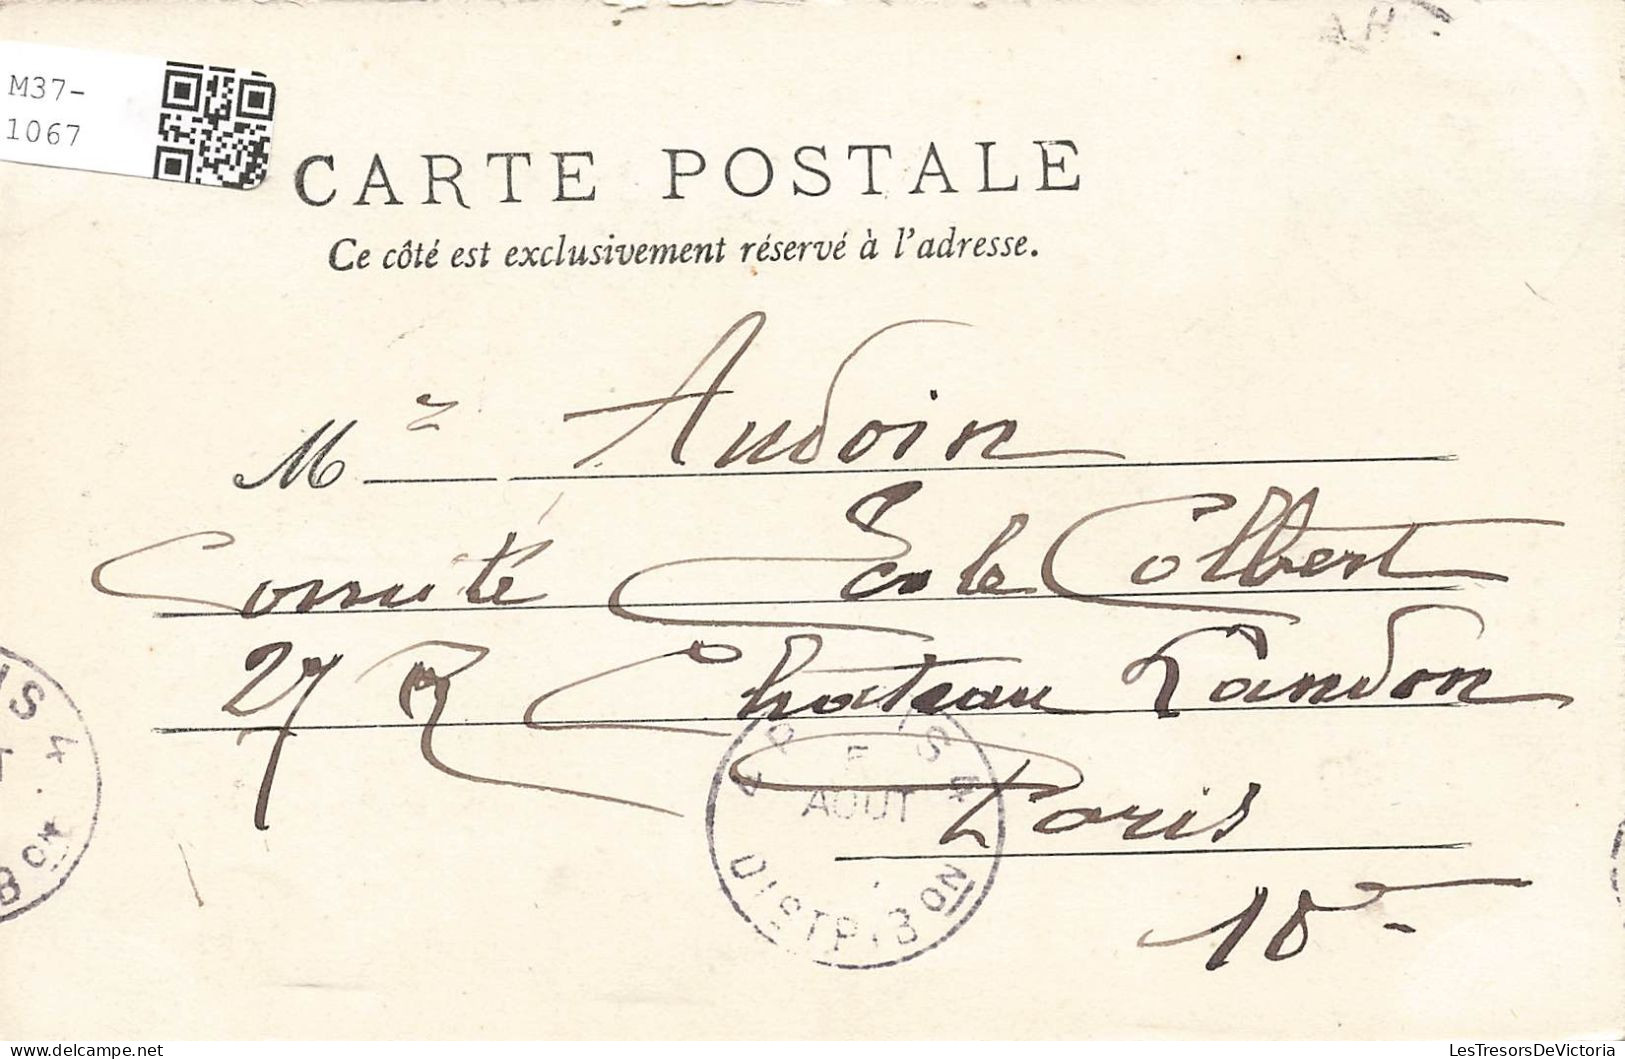 M37-
1067
CARTE POSTALE
Ce côté est exclusivement réservé à l'adresse.
Mr Audoin
Comité Ecole Colbert
27 R Chateau Landon
Paris
10e
IS 4
B ON
PARIS 4
AOUT
DISTRIBON
delcampe.net
LesTresorsDeVictoria